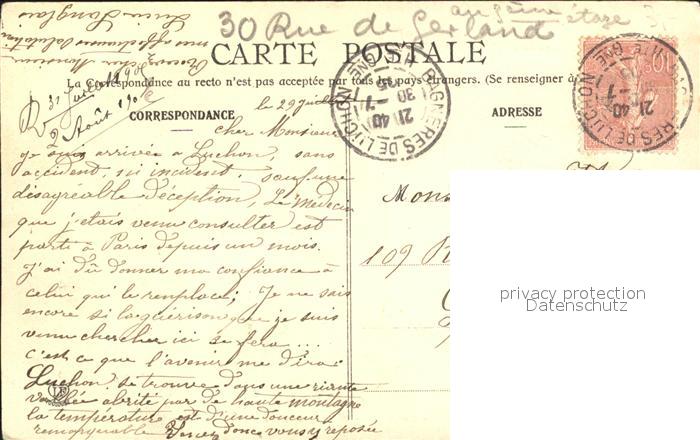 au 3ème étage
30 Rue de Gerland
CARTE POSTALE
La Correspondance au recto n'est pas acceptée par tous les pays étrangers. (Se renseigner à
CORRESPONDANCE
ADRESSE
Recevez cher Monsieur
mes affectueuses salutations
R 31 Juillet
2 Août 190
BAGNERES DE LUCHON
21 40
30 -7
BAGNERES DE LUCHON
21 40
-7
10
le 29 juillet
cher Monsieur
je suis arrivée à Luchon, sans
accident, ni incident, sauf une
désagréable déception, Le Médecin
que j'étais venu consulter est
parti à Paris depuis un mois.
J'ai dû donner ma confiance à
celui qui le remplace; Je ne sais
encore si la guérison que je suis
venu chercher ici se fera ....
c'est ce que l'avenir me dira.
Luchon se trouve dans une riante
vallée abritée par de haute montagne
la température est d'une douceur
remarquable Venez donc vous y reposée
Mons
109 R
privacy protection
Datenschutz